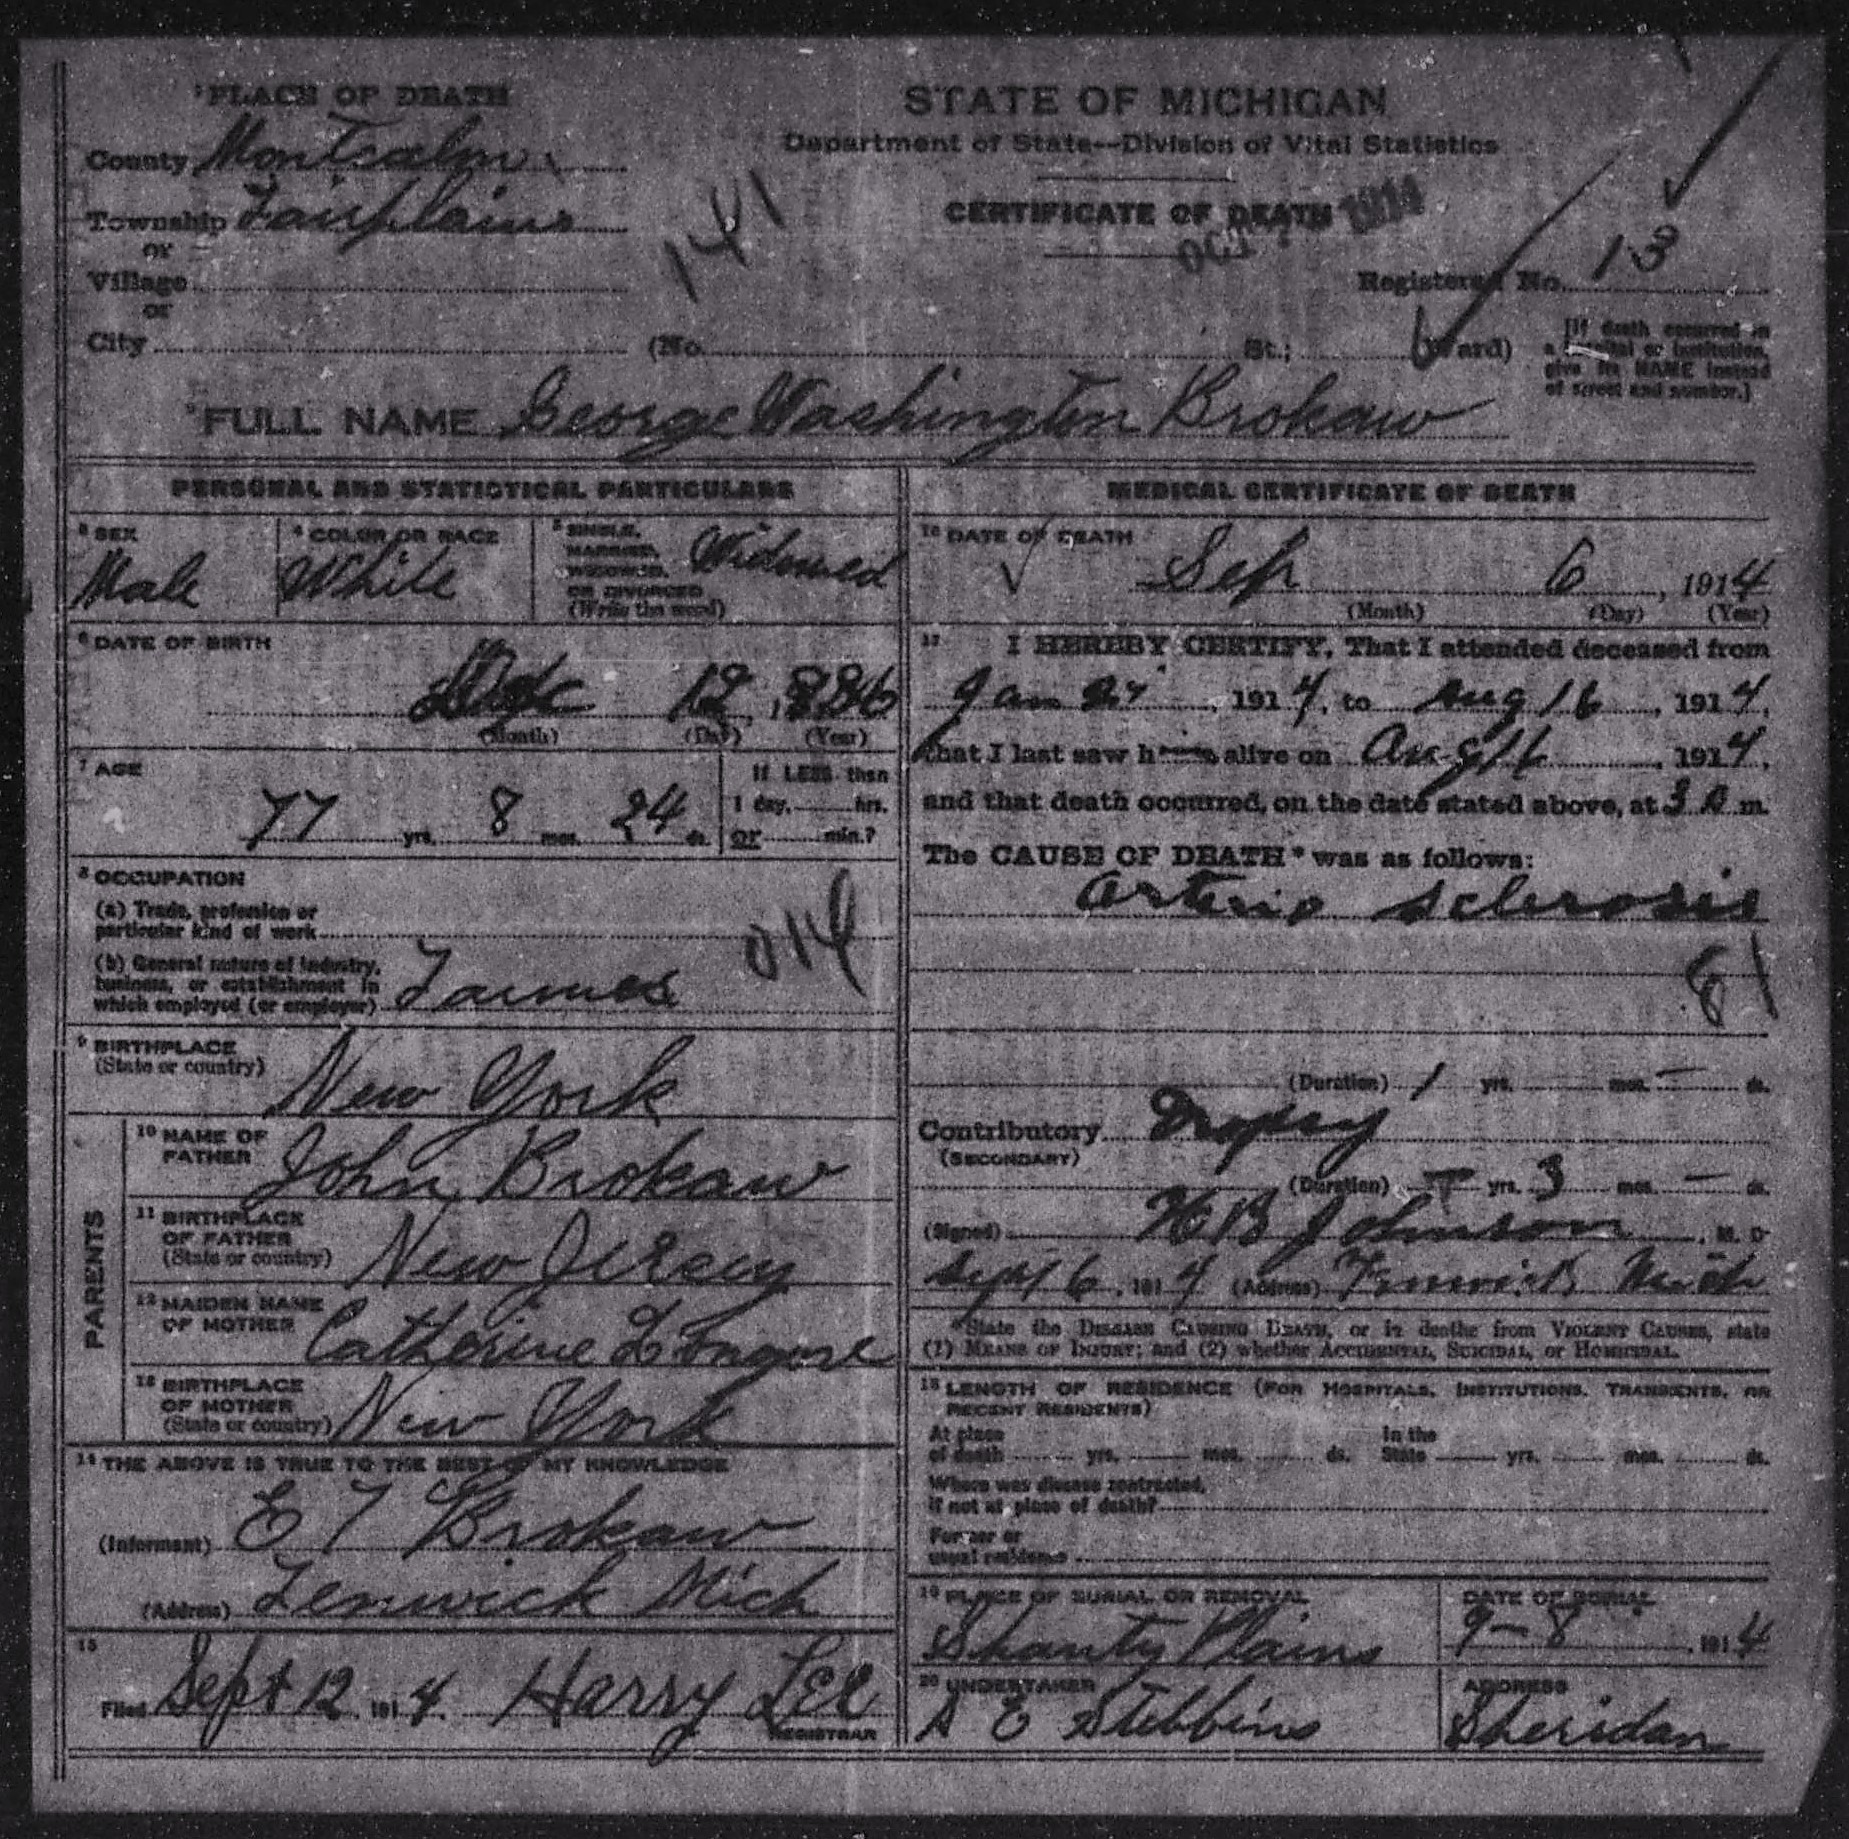 ¹PLACE OF DEATH
STATE OF MICHIGAN
Department of State—Division of Vital Statistics
County Montcalm
Township Fairplains
141
CERTIFICATE OF DEATH
OCT 1914
or
Village
Registered No. 13
or
City (No. St.; Ward)
[If death occurred in
a hospital or institution,
give its NAME instead
of street and number.]
²FULL NAME George Washington Brokaw
PERSONAL AND STATISTICAL PARTICULARS
³ SEX
Male
⁴ COLOR OR RACE
White
⁵ SINGLE,
MARRIED,
WIDOWED,
OR DIVORCED
(Write the word)
Widowed
⁶ DATE OF BIRTH
Dec 12, 1836
(Month) (Day) (Year)
⁷ AGE
77 yrs. 8 mos. 24 ds.
If LESS than
1 day, hrs.
or min.?
⁸ OCCUPATION
(a) Trade, profession or
particular kind of work
014
(b) General nature of industry,
business, or establishment in
which employed (or employer) Farmer
⁹ BIRTHPLACE
(State or country)
New York
PARENTS
¹⁰ NAME OF
FATHER
John Brokaw
¹¹ BIRTHPLACE
OF FATHER
(State or country)
New Jersey
¹² MAIDEN NAME
OF MOTHER
Catherine
¹³ BIRTHPLACE
OF MOTHER
(State or country)
New York
¹⁴ THE ABOVE IS TRUE TO THE BEST OF MY KNOWLEDGE
(Informant) E T Brokaw
(Address) Fenwick Mich
¹⁵
Filed Sept 12 1914. Harry Lee
REGISTRAR
MEDICAL CERTIFICATE OF DEATH
¹⁶ DATE OF DEATH
Sep 6, 1914
(Month) (Day) (Year)
¹⁷ I HEREBY CERTIFY, That I attended deceased from
Jan 27, 1914, to Aug 16, 1914,
that I last saw him alive on Aug 16, 1914,
and that death occurred, on the date stated above, at 3 A m.
The CAUSE OF DEATH* was as follows:
Arterio sclerosis
81
(Duration) 1 yrs. mos. – ds.
Contributory Dropsy
(SECONDARY)
(Duration) – yrs. 3 mos. – ds.
(Signed) H B Johnson, M. D
Sept 6, 1914 (Address) Fenwick Mich
*State the DISEASE CAUSING DEATH, or in deaths from VIOLENT CAUSES, state
(1) MEANS OF INJURY; and (2) whether ACCIDENTAL, SUICIDAL, or HOMICIDAL.
¹⁸ LENGTH OF RESIDENCE (FOR HOSPITALS, INSTITUTIONS, TRANSIENTS, OR
RECENT RESIDENTS)
At place
of death yrs. mos. ds.
In the
State yrs. mos. ds.
Where was disease contracted,
if not at place of death?
Former or
usual residence
¹⁹ PLACE OF BURIAL OR REMOVAL
Shanty Plains
DATE OF BURIAL
9–8 1914
²⁰ UNDERTAKER
A E Stebbins
ADDRESS
Sheridan